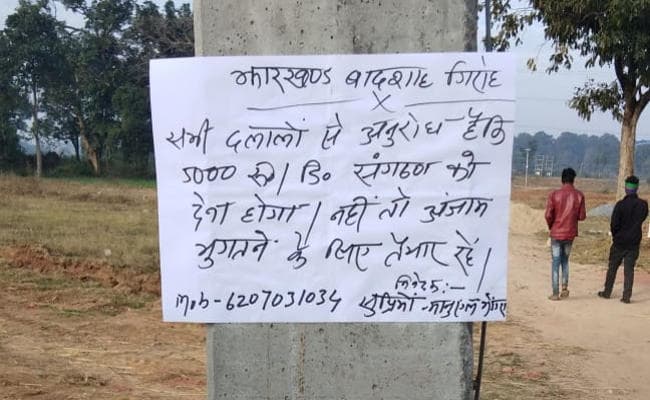 झारखण्ड बादशाह गिरोह
X
सभी दलालों से अनुरोध है कि
5000 रू०/डि० संगठण को
देना होगा। नहीं तो अंजाम
भुगतने के लिए तैयार रहें।
निवेदक:-
mob-6207031034 सुप्रिमो-